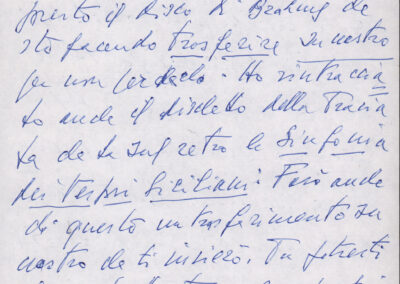 questo il disco di Brahms che
sto facendo trasferire su nastro
per non perderlo. Ho rintraccia
to anche il dischetto della Travia
ta che ha sul retro la Sinfonia
dei Vespri Siciliani. Farò anche
di questo un trasferimento su
nastro che ti invierò. Tu potresti